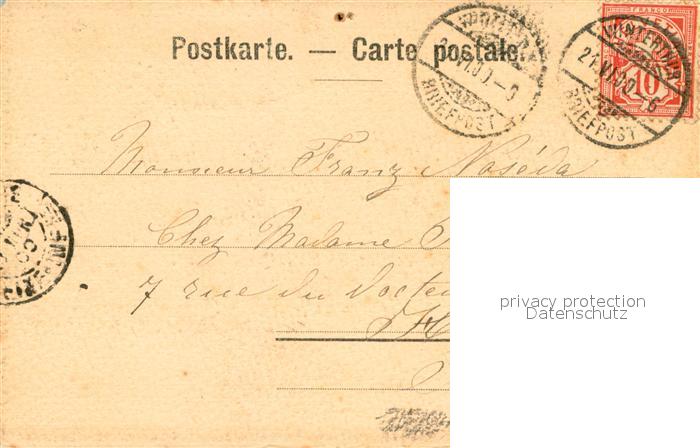 Postkarte. — Carte postale.
WINTERTHUR
21.VI.00.–6
BRIEFPOST
FRANCO
WINTERTHUR
21.VI.00.–6
BRIEFPOST
10
Monsieur Franz Noséda
Chez Madame
7 rue du
privacy protection
Datenschutz